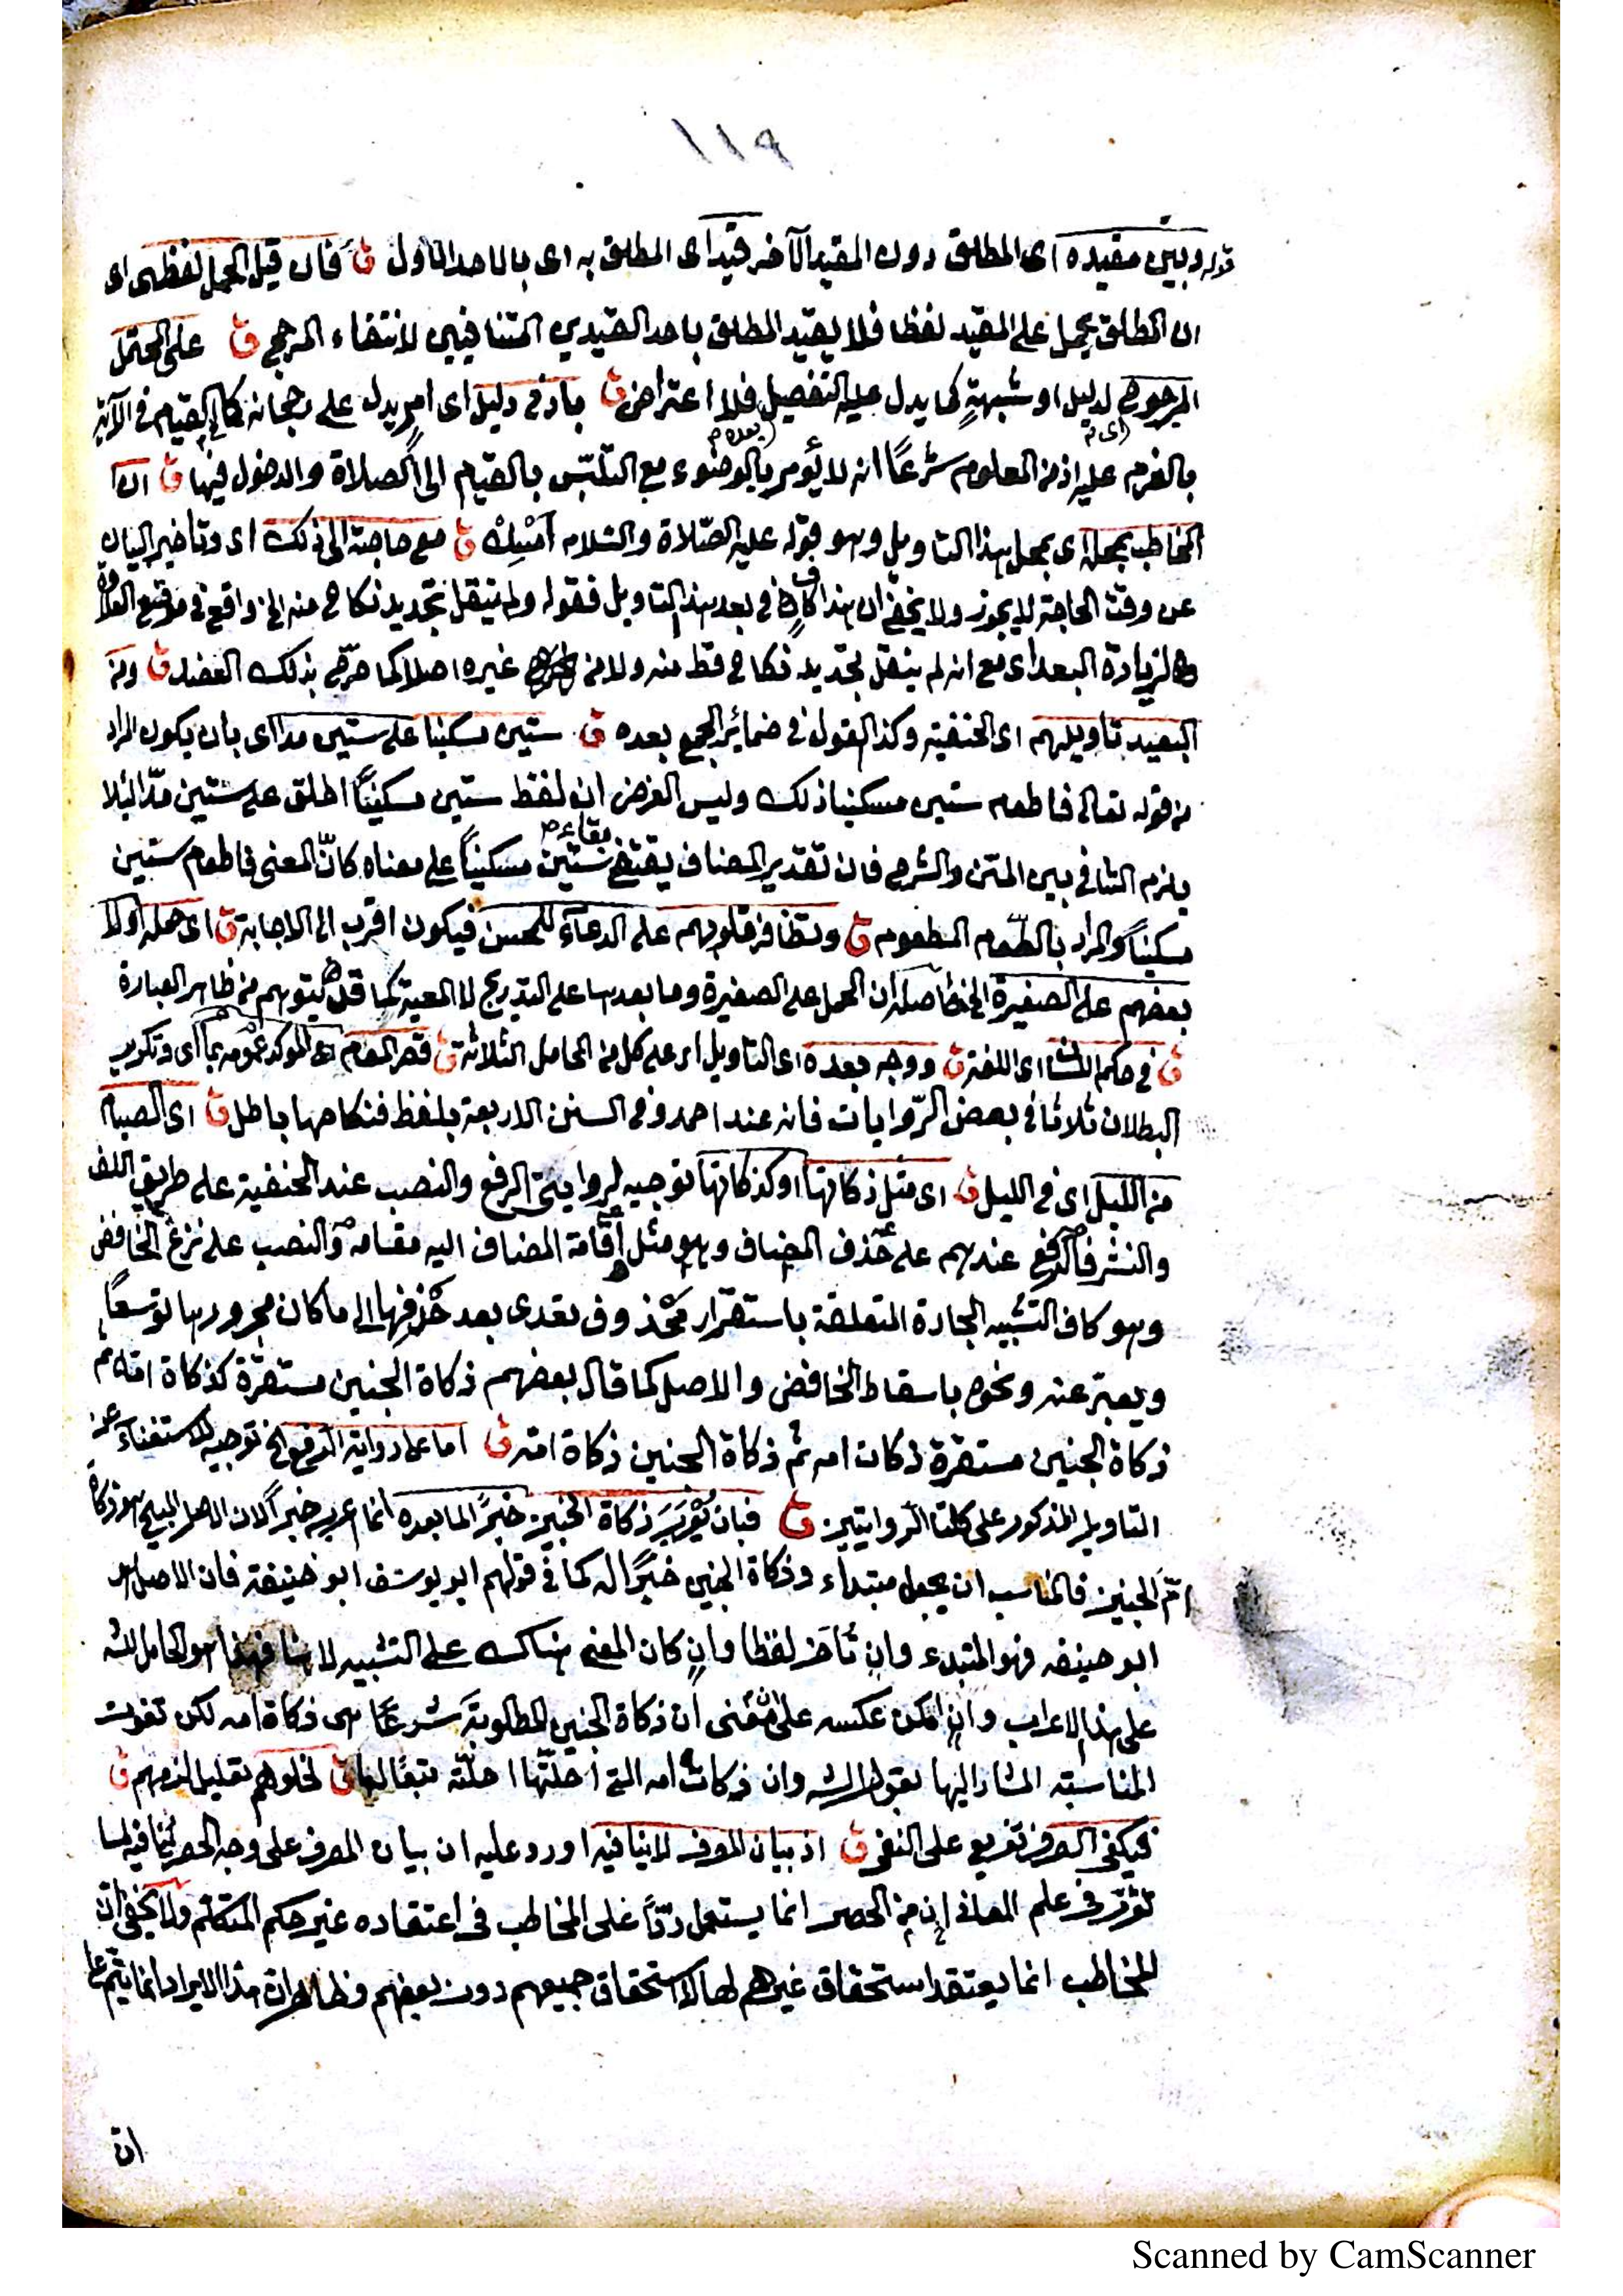 ١١٩
قوله وبين مقيده اى المطلق دون المقيد الآخر قيد اى المطلق به اى بالاحد الاول ق فان قيل الحمل لفظى اى
ان المطلق يحمل على المقيد لفظا فلا يقيد المطلق باحد القيدين المتنافيين لانتفاء المرجح ق على المحتمل
المرجوح لدليل او شبهةٍ كما يدل عليه التفصيل فلا اعتراض ق بادنى دليل اى امر يدل على رجحانه كما فى القيام فى الآية
بالعزم عليه اذ من المعلوم شرعًا انه لا يؤمر بالوضوء مع التلبّس بالقيام الى الصلاة والدخول فيها ق ان
المخاطب بمحله اى بمحل هذا التاويل وهو قوله عليه الصّلاة والسّلام اَمْسِكْ ق مع حاجته الى ذلك اى وتاخير البيان
عن وقت الحاجة لا يجوز ولا يخفى ان هذا كافٍ فى بعد هذا التاويل فقوله ولم ينقل تجديد نكاح منه الخ واقع فى موقع العلاوة
لزيادة البعد اى مع انه لم ينقل تجديد نكاح قط منه ولا من غيره اصلا كما صرّح بذلك العضد ق ومن
البعيد تاويلهم اى الحنفية وكذا القول فى ضمائر الجمع بعده ق ستين مسكينا على ستين مدا اى بان يكون المراد
من قوله تعالى فاطعام ستين مسكينا ذلك وليس الغرض ان لفظ ستين مسكينًا اطلق على ستين مدّا لئلا
يلزم التنافى بين المتن والشرح فان تقدير المضاف يقتضى بقاء ستين مسكينًا على معناه كانّ المعنى فاطعام ستين
مسكينًا والمراد بالطعام المطعوم ق وتظافر قلوبهم على الدعاء للمحسن فيكون اقرب الى الاجابة ق اى حمله اولا
بعضهم على الصغيرة الخ حاصله ان الحمل على الصغيرة وما بعدها على التدريج لا المعية كما قد يتوهم من ظاهر العبارة
ق فى حكم اللسان اى اللغة ق ووجه بعده اى التاويل اى على كل من المحامل الثلاثة ق قصر العام المؤكد عمومه بما اى وتكرير
البطلان ثلاثا فى بعض الرّوايات فانه عند احمد وفى السنن الاربعة بلفظ فنكاحها باطل ق اى الصيام
من الليل اى فى الليل ق اى مثل ذكاتها او كذكاتها توجيه لروايتى الرفع والنصب عند الحنفية على طريق اللف
والنشر فالرفع عندهم على حذف المضاف وهو مثل اقامة المضاف اليه مقامه والنصب على نزع الخافض
وهو كاف التشبيه الجارة المتعلقة باستقرار محذوف تعدى بعد حذفها الى ما كان مجرورها توسعًا
ويعبّر عنه ونحوه باسقاط الخافض والاصل كما قال بعضهم ذكاة الجنين مستقرّة كذكاة امّه ثم
ذكاة الجنين مستقرة ذكات امه ثم ذكاة الجنين ذكاة امّه ق اما على رواية الرفع الخ توجيه للاستغناء عن
التاويل المذكور على كلتا الروايتين ق فبان يُعْرَبَ ذكاة الجنين خبرًا لما بعده انما اعربه خبرًا لان الاصل المبيح هو ذكاة
امّ الجنين فالمناسب ان يجعل مبتداء وذكاة الجنين خبرًا له كما فى قولهم ابو يوسف ابو حنيفة فان الاصل هو
ابو حنيفه فهو المبتدء وان تاخر لفظا وان كان المعنى هناك على التشبيه لا هنا فهذا هو الحامل للشه
على هذا الاعراب وان امكن عكسه على معنى ان ذكاة الجنين المطلوبة شرعًا هى ذكاة امه لكن تفوت
المناسبته المشار اليها بقول الشه وان ذكاة امه التى احلّتها احلّته تبعًا لها ق لخلوهم تعليل لذمهم ق
فيكفى الصرف تفريع على النفى ق اذ بيان المصرف لا ينافيه اورد عليه ان بيان المصرف على وجه الحصر ينافيه لما
تقرّر فى علم المعانى ان من الحصر انما يستعمل ردًّا على المخاطب فى اعتقاده غير حكم المتكلم ولا يخفى ان
المخاطب انما يعتقد استحقاق غيرهم لها لا استحقاق جميعهم دون بعضهم وظاهر ان هذا الايراد انما يتم على
ان
Scanned by CamScanner